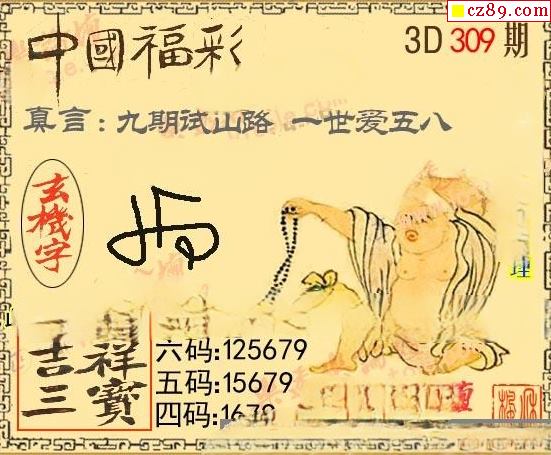 cz89.com
中國福彩
3D 309 期
真言：九期试山路 一世爱五八
玄機字
吉祥
三寶
六码:125679
五码:15679
四码:1679